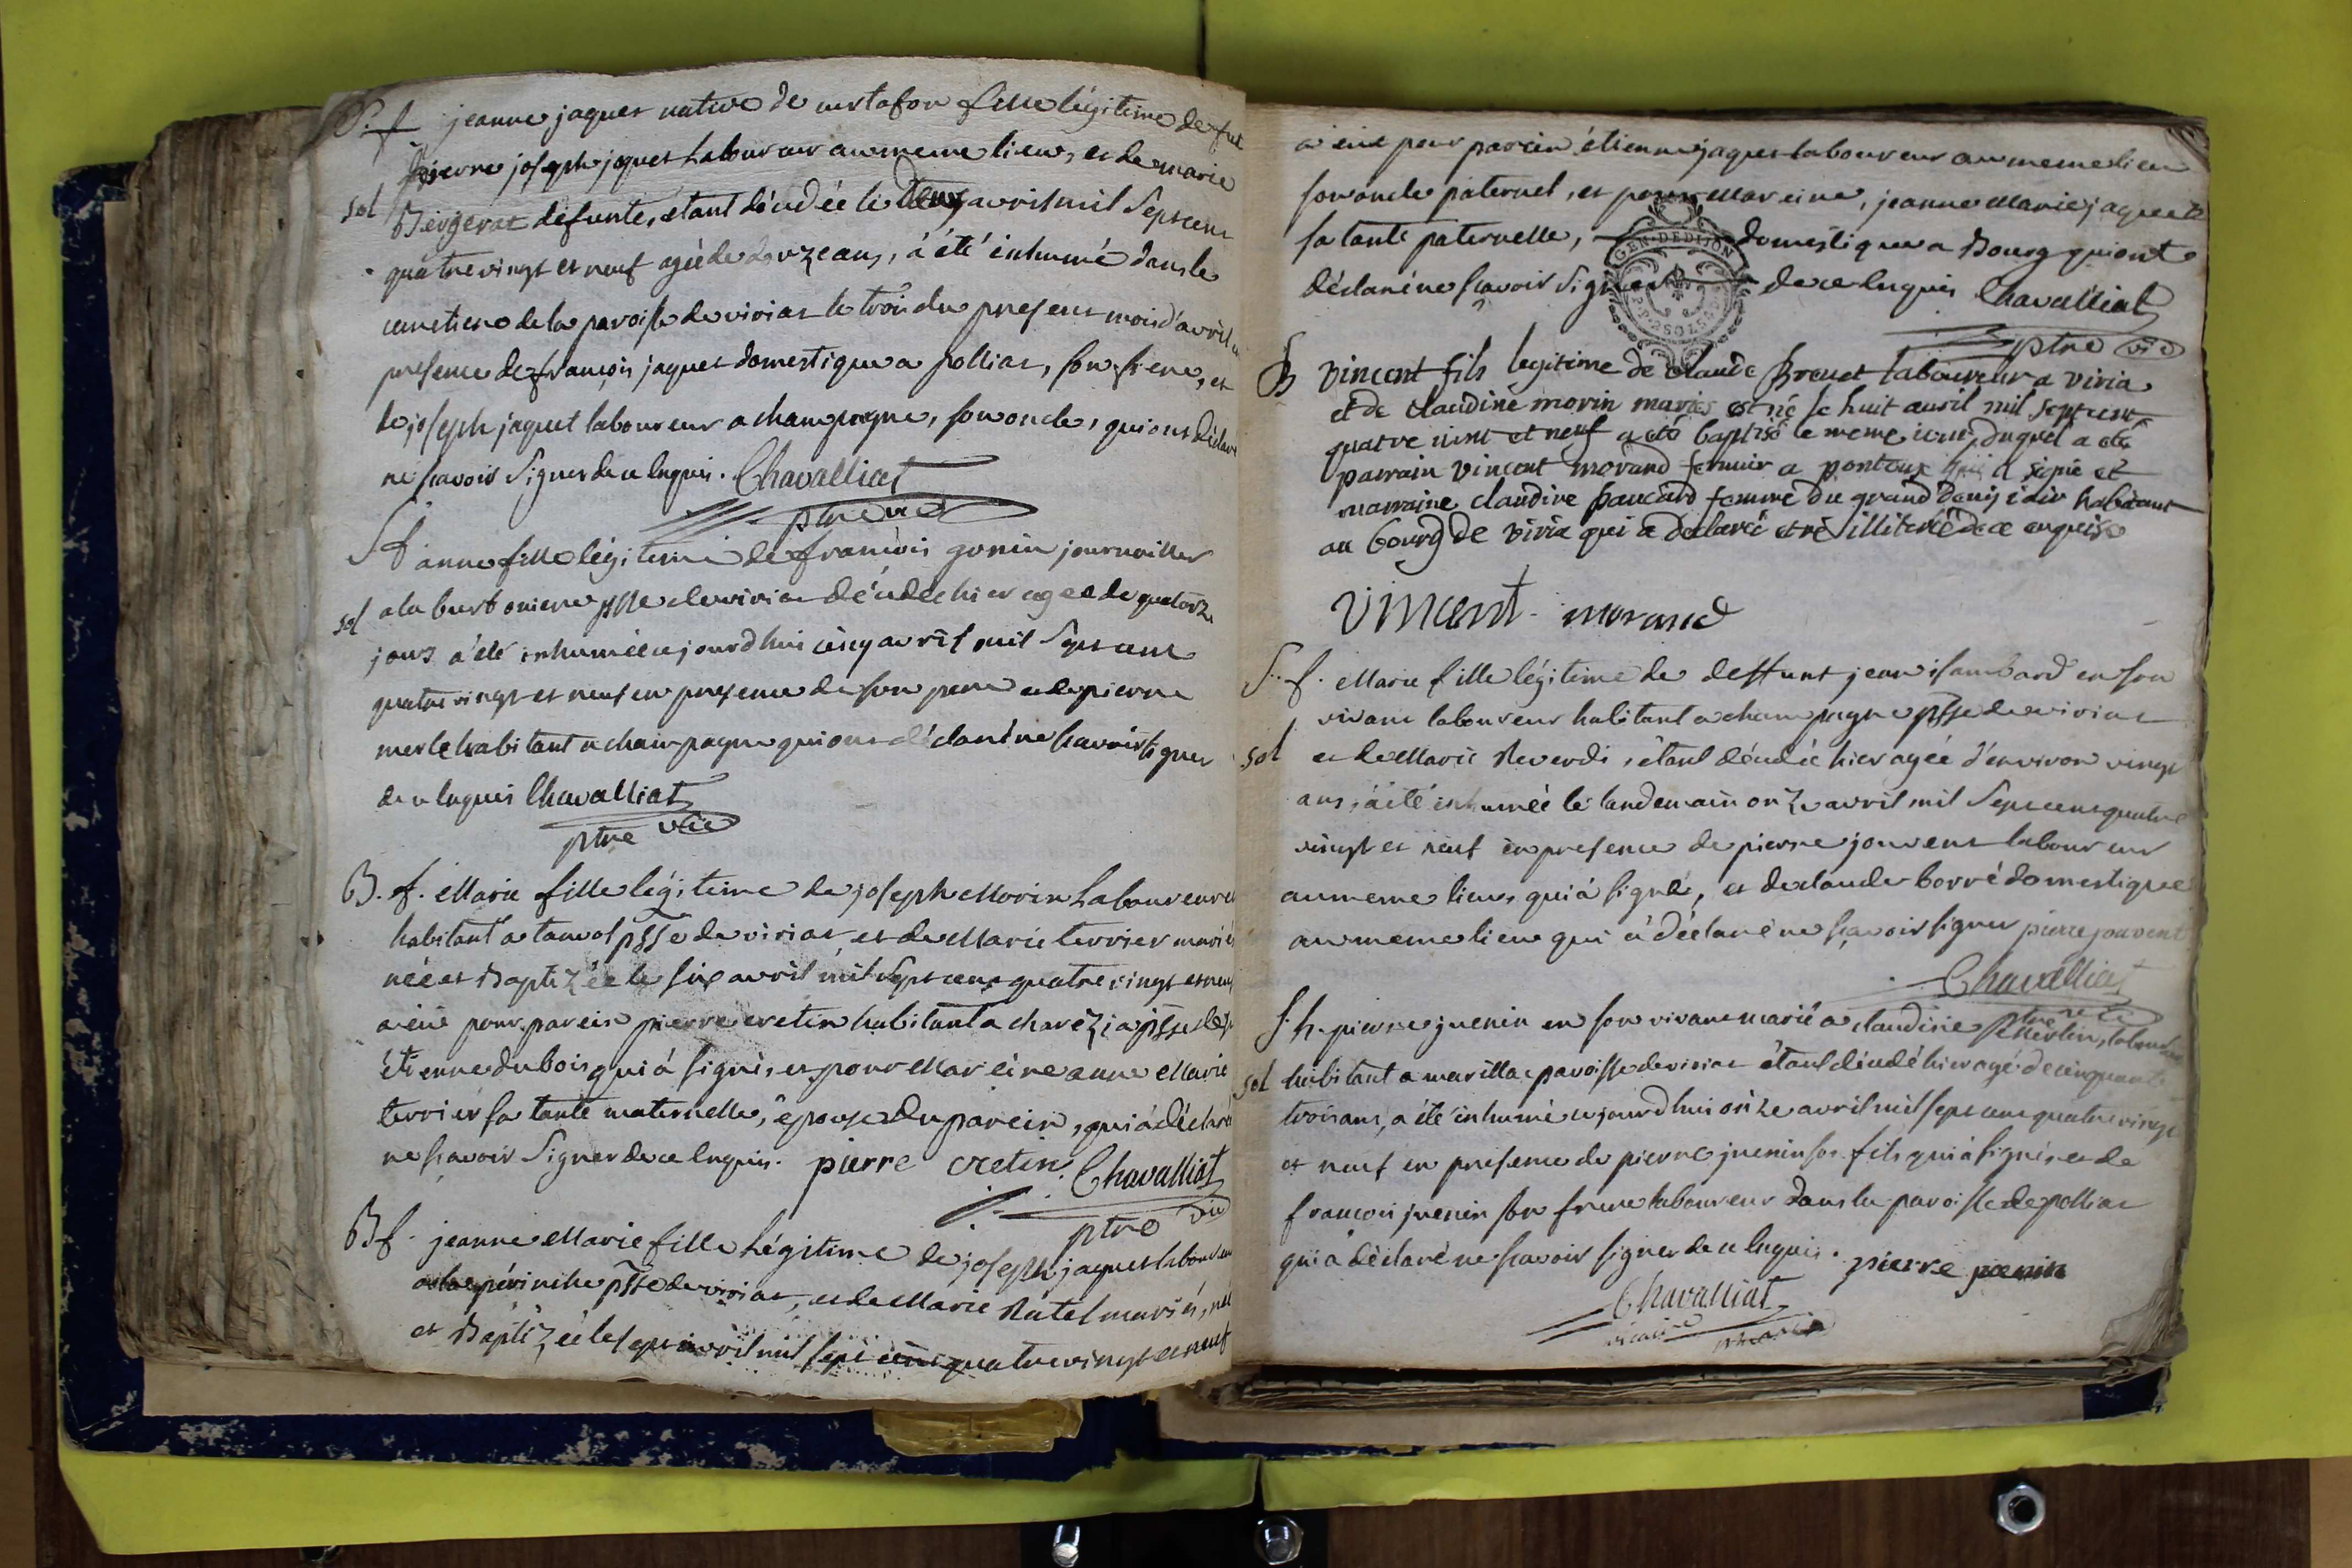 S. f. jeanne jaquet native de curtafon fille légitime de fut
pierre joseph jaquet Laboureur au meme lieu, et de marie
sol Bergerat defunte, étant décédée le deux avril mil Sept cent
quatre vingt et neuf agée de douze ans, á été inhumé dans le
cimetiere de la paroisse de viriat le trois du present mois d'avril
presence de françois jaquet domestique a polliat, son frere, et
de joseph jaquet laboureur a champagne, son oncle, qui ont déclaré
ne scavoir Signer de ce Enquis. Chavalliat
ptre vic
S f anne fille légitime de francois gonin journallier
sol a la burtoniere psse de viriat décédée hier agée de quatorze
jours a été inhumée ajourd'hui cinq avril mil Sept cent
quatre vingt et neuf en presence de son pere et de pierre
merle habitant a champagne qui ont déclaré ne scavoir signer
de ce Enquis Chavalliat
ptre vic
B. f. Marie fille légitime de joseph Morin Laboureur
habitant a psse de viriat et de Marie terrier mariés
née et Baptizée le six avril mil Sept cent quatre vingt et neuf
a eû pour parein pierre cretin habitant a psse de st
étienne dubois qui á signé, et pour Mareine anne Marie
terrier sa tante maternelle, épouse du parein, qui á déclaré
ne scavoir Signer de ce Enquis. pierre cretin Chavalliat
ptre vic
B f. jeanne Marie fille Légitime de joseph jaquet laboureur
psse de viriat, et de Marie Râtel mariés, née
et Baptizée le sept avril mil sept cent quatre vingt et neuf
a eue pour parein étienne jaquet laboureur au meme lieu
son oncle paternel, et pour Mareine, jeanne Marie jaquet
sa tante paternelle, domestique a Bourg qui ont
GEN. DE DIJON
déclaré ne scavoir Signer de ce Enquis Chavalliat
ptre vic
B vincent fils legitime de claude Brevet laboureur a viria
et de claudine morin mariés est né le huit avril mil sept cent
quatre vint et neuf a eté baptisé le meme jour, duquel a eté
parrain vincent morand fermier a qui a signé et
marraine claudine femme du grand denis habitant
au bourg de viria qui a declaré etre illiterée de ce enquise
vincent morand
S. f. Marie fille légitime de deffunt jean isambard en son
vivant laboureur habitant a champagne psse de viriat
sol et de Marie Reverdi, étant décédée hier agée d'environ vingt
ans, a été inhumée le landemain onze avril mil Sept cent quatre
vingt et neuf en presence de pierre jouvent laboureur
au meme lieu, qui á signé, et de claude borré domestique
au meme lieu qui á déclaré ne scavoir signer pierre jouvent
Chavalliat
ptre vic
S. h. pierre juenin en son vivant marié a claudine Merlin, laboureur
sol habitant a paroisse de viriat étant décédé hier agé de cinquante
trois ans, a été inhumé ajourd'hui onze avril mil sept cent quatre vingt
et neuf en presence de pierre juenin son fils qui á signé, et de
francois juenin son frere laboureur dans la paroisse de polliat
qui a déclaré ne scavoir signer de ce Enquis. pierre juenin
Chavalliat
vicaire